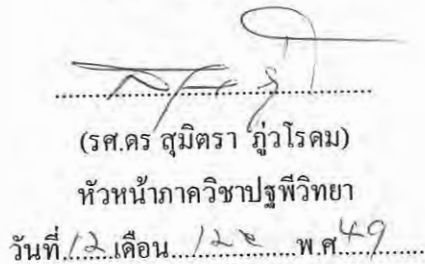 (รศ.ดร สุมิตรา ภู่วโรดม)
หัวหน้าภาควิชาปฐพีวิทยา
วันที่ 12 เดือน พ.ศ 49